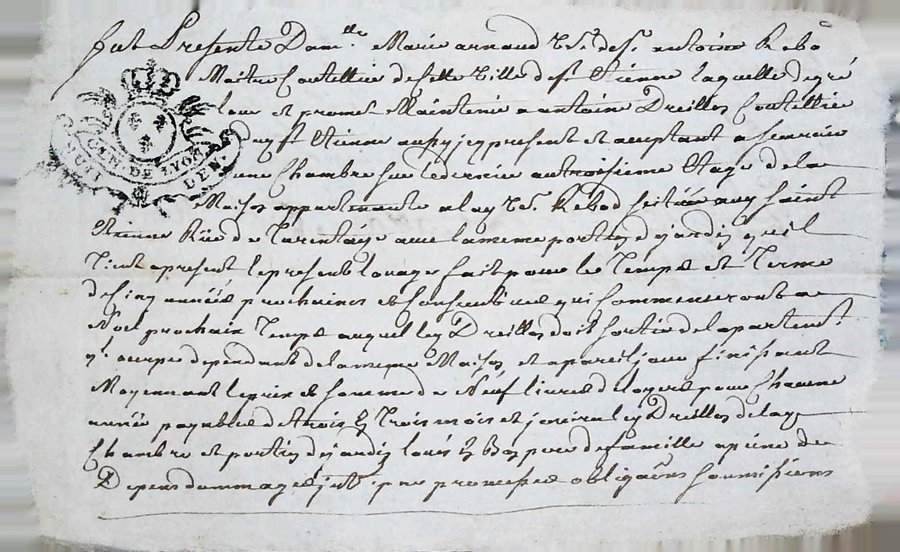 fut Presente Dam.lle Marie arnaud V.e de s.r antoine Rebo
Maitre Coutellier de cette Ville de s.t Etienne laquelle degré
loue et promet Maintenir a antoine Dreilles Coutellier
dud s.t Etienne aussy icy present et acceptant a scavoir
une Chambre sur le dernier au troisieme Etage de la
Maison appartenante alad V.e Rebod scituée aud Saint
Etienne Rüe de Tarentaize avec la meme portion de jardin qu'il
Tient apresent le present louage fait pour le Temps et Terme
de Cinq années prochaines et Consecutives qui Commenceront a
Noel prochain Temps auquel led Dreilles doit sortir de lapartem.t
q.l occupe dependant de la meme Maison et a pareil jour finissant
Moyennant le prix et somme de Neuf livres de loyers pour Chacune
année payables de trois En Trois mois et jouira led Dreilles de lad
Chambre et portion de jardin loués En Bon pere de famille apeine de
Depens dommages int. par promesses obligaõns soumissions
GEN. DE LYON